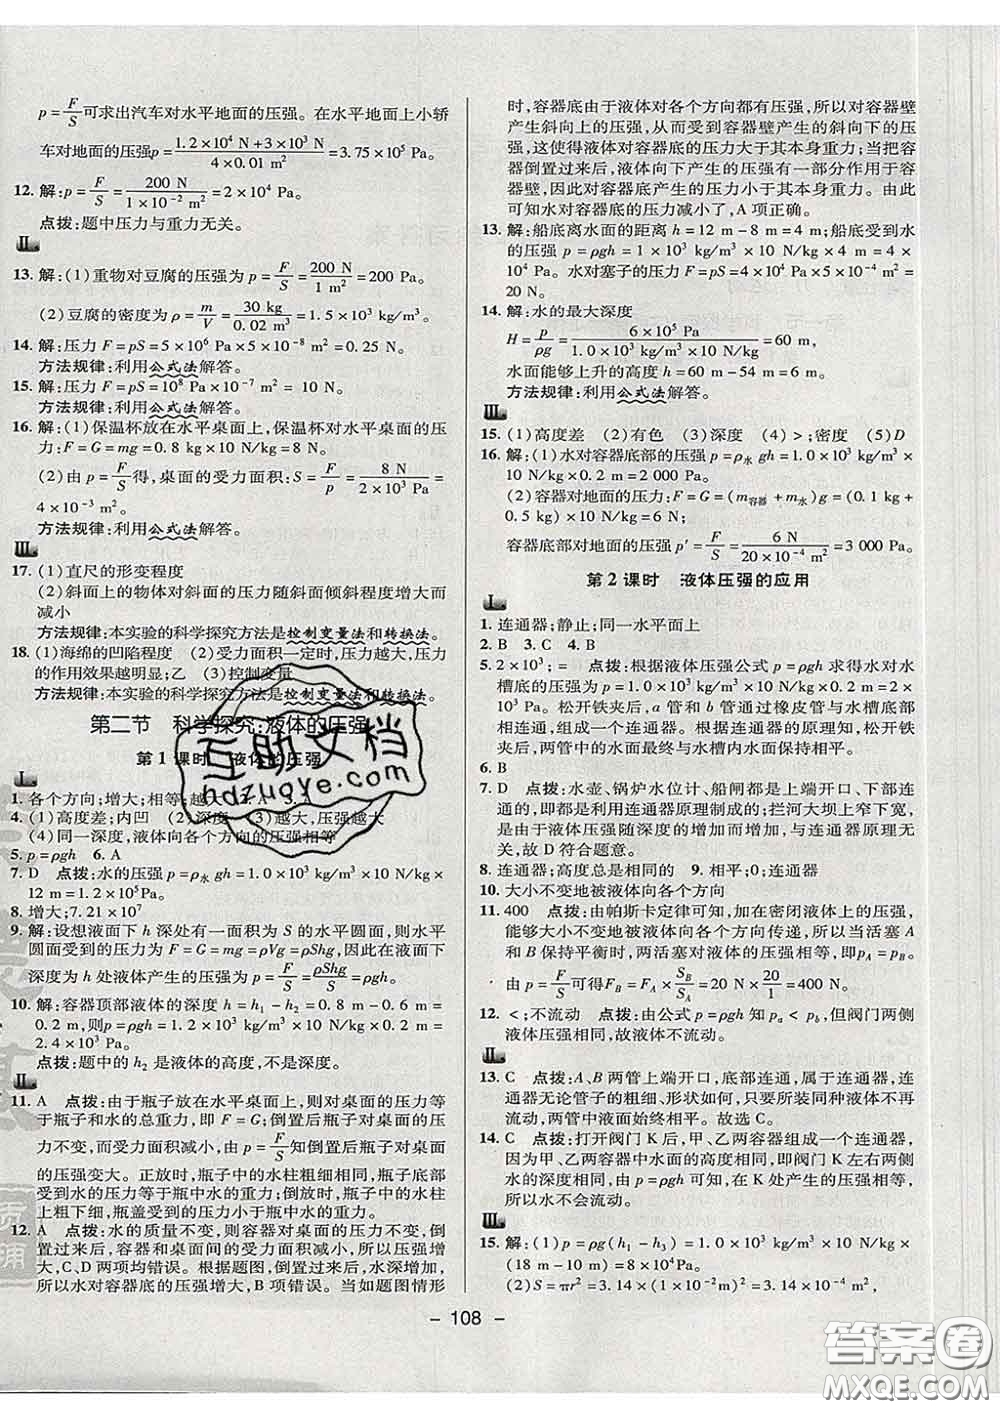 p=F/S可求出汽车对水平地面的压强。在水平地面上小轿
车对地面的压强p=(1.2×10⁴ N+3×10³ N)/(4×0.01 m²)=3.75×10⁵ Pa。
12. 解:p=F/S=200 N/(1×10⁻² m²)=2×10⁴ Pa。
点拨:题中压力与重力无关。
Ⅱ
13. 解:(1)重物对豆腐的压强为p=F/S=200 N/1 m²=200 Pa。
(2)豆腐的密度为ρ=m/V=30 kg/0.02 m³=1.5×10³ kg/m³。
14. 解:压力F=pS=5×10⁶ Pa×5×10⁻⁸ m²=0.25 N。
方法规律:利用公式法解答。
15. 解:压力F=pS=10⁸ Pa×10⁻⁷ m²= 10 N。
方法规律:利用公式法解答。
16. 解:(1)保温杯放在水平桌面上,保温杯对水平桌面的压
力:F=G=mg=0.8 kg×10 N/kg=8 N。
(2)由p=F/S得,桌面的受力面积:S=F/p=8 N/(2×10³ Pa)=
4×10⁻³ m²。
方法规律:利用公式法解答。
Ⅲ
17. (1)直尺的形变程度
(2)斜面上的物体对斜面的压力随斜面倾斜程度增大而
减小
方法规律:本实验的科学探究方法是控制变量法和转换法。
18. (1)海绵的凹陷程度 (2)受力面积一定时,压力越大,压力
的作用效果越明显;乙 (3)控制变量
方法规律:本实验的科学探究方法是控制变量法和转换法。
第二节 科学探究:液体的压强
第1课时 液体的压强
Ⅰ
1. 各个方向;增大;相等;越大
4. (1)高度差;内凹 (2)深度 (3)越大,压强越大
(4)同一深度,液体向各个方向的压强相等
5. p=ρgh 6. A
7. D 点拨:水的压强p=ρ水 gh=1.0×10³ kg/m³×10 N/kg×
12 m=1.2×10⁵Pa。
8. 增大;7.21×10⁷
9. 解:设想液面下h深处有一面积为S的水平圆面,则水平
圆面受到的压力为F=G=mg=ρVg=ρShg,因此在液面下
深度为h处液体产生的压强为p=F/S=ρShg/S=ρgh。
10. 解:容器顶部液体的深度h=h₁-h₂=0.8 m-0.6 m=
0.2 m,则p=ρgh=1.2×10³ kg/m³×10 N/kg×0.2 m=
2.4×10³ Pa。
点拨:题中的h₂是液体的高度,不是深度。
Ⅱ
11. A 点拨:由于瓶子放在水平桌面上,则对桌面的压力等
于瓶子和水的总重力,即F=G;倒置后瓶子对桌面的压
力不变,而受力面积减小,由p=F/S知倒置后瓶子对桌面
的压强变大。正放时,瓶子中的水柱粗细相同,瓶子底部
受到水的压力等于瓶中水的重力;倒放时,瓶子中的水柱
上粗下细,瓶盖受到的压力小于瓶中水的重力。
12. A 点拨:水的质量不变,则容器对桌面的压力不变,倒
置过来后,容器和桌面间的受力面积变小,所以压强增
大,C、D两项均错误。容器倒置过来后,水深增加了,所
以水对容器底的压强增大,B项错误。当如题图情形
时,容器底由于液体对各个方向都有压强,所以对容器壁
产生斜向上的压强,从而受到容器壁产生的斜向下的压
强,这使得液体对容器底的压力大于其本身重力。当把容
器倒置过来后,液体向下产生的压强有一部分作用于容
器壁,因此对容器底产生的压力小于其本身重力。由此
可知水对容器底的压力减小了,A项正确。
13. 解:船底离水面的距离h=12 m-8 m=4 m;船底受到水
的压强p=ρgh=1×10³ kg/m³×10 N/kg×4 m=4×
10⁴ Pa。水对塞子的压力F=pS=4×10⁴ Pa×5×10⁻⁴ m²=
20 N。
14. 解:水的最大深度
H=p/ρg=6×10⁵ Pa/(1.0×10³ kg/m³×10 N/kg)=60 m,
水面能够上升的高度h=60 m-54 m=6 m。
方法规律:利用公式法解答。
Ⅲ
15. (1)高度差 (2)有色 (3)深度 (4)>;密度 (5)D
16. 解:(1)水对容器底部的压强p=ρ水 gh=1.0×10³ kg/m³×
10 N/kg×0.2 m=2 000 Pa。
(2)容器对地面的压力:F=G=(m容器+m水)g=(0.1 kg+
0.5 kg)×10 N/kg=6 N;
容器底部对地面的压强p′=F/S=6 N/(20×10⁻⁴ m²)=3 000 Pa。
第2课时 液体压强的应用
Ⅰ
1. 连通器;静止;同一水平面上
2. B 3. C 4. B
5. 2×10³;= 点拨:根据液体压强公式p=ρgh求得水对水
槽底的压强为p=ρgh=1.0×10³ kg/m³×10 N/kg×0.2 m=
2×10³ Pa。松开铁夹后,a管和b管通过橡皮管与水槽底
部相连通,组成一个连通器。根据连通器原理知,松开铁
夹后,两管中的水面最终与水槽内水面保持相平。
6. B
7. D 点拨:水壶、锅炉水位计、船闸都是上端开口、下部连通
的,即都是利用连通器原理制成的;拦河大坝上窄下宽,是
由于液体压强随深度的增加而增加,与连通器原理无
关,故D符合题意。
8. 连通器;高度总是相同的 9. 相平;0;连通器
10. 大小不变地被液体向各个方向
11. 400 点拨:由帕斯卡定律可知,加在密闭液体上的压强,
能够大小不变地被液体向各个方向传递,所以当活塞A
和B保持平衡时,两活塞对液体的压强相等,即pA=pB。
由p=F/S可得FB=FA×SB/SA=20 N×20/1=400 N。
12. <;不流动 点拨:由公式p=ρgh知pa<pb,但阀门两侧
液体压强相同,故液体不流动。
Ⅱ
13. C 点拨:A、B两管上端开口,底部连通,属于连通器,连通
器无论管子的粗细、形状如何,只要所装同种液体不再
流动,两管中液面始终相平。故选C。
14. C 点拨:打开阀门K后,甲、乙两容器组成一个连通器,
因为甲、乙两容器中水面的高度相同,即K左右两侧
水的深度是相同的,由p=ρgh知,在K处产生的压强相等,
所以水不会流动。
Ⅲ
15. 解:(1)p=ρg(h₁-h₃)=1.0×10³ kg/m³×10 N/kg×
(18 m-10 m)=8×10⁴ Pa;
(2)S=πr²=3.14×(1×10⁻² m)²=3.14×10⁻⁴ m²,
- 108 -
互助文档
hdzuoye.com
答案圈
MXQE.COM